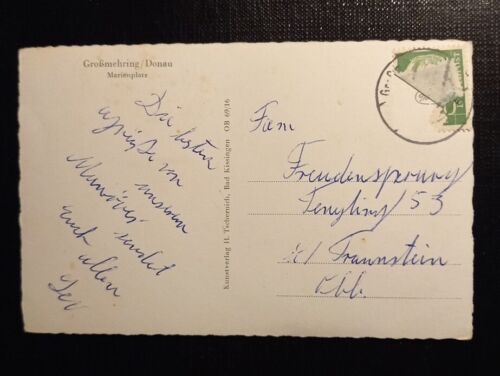 Großmehring/Donau
Marienplatz
Die besten
Grüße von
unserem
Manöver sendet
euch allen
Kunstverlag H. Tschernich, Bad Kissingen OB 69/16
Fam
Freudensprung
53
Traunstein
Obb.